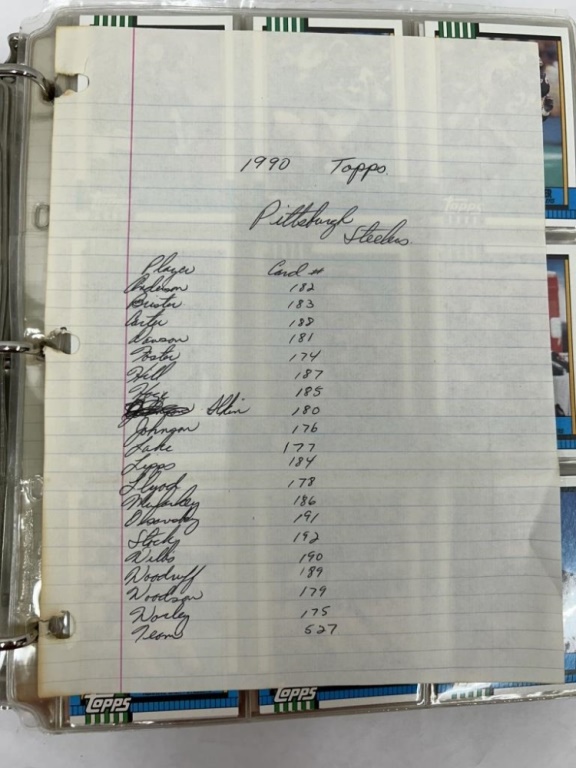 1990 Topps
Pittsburgh
Steelers
Player Card #
Anderson 182
Brister 183
Carter 188
Dawson 181
Foster 174
Hill 187
Hoge 185
Ilkin 180
Johnson 176
Lake 177
Lipps 184
Llyod 178
Mularkey 186
191
Stock 192
190
Woodruff 189
Woodson 179
Worley 175
Team 527
Topps
Topps